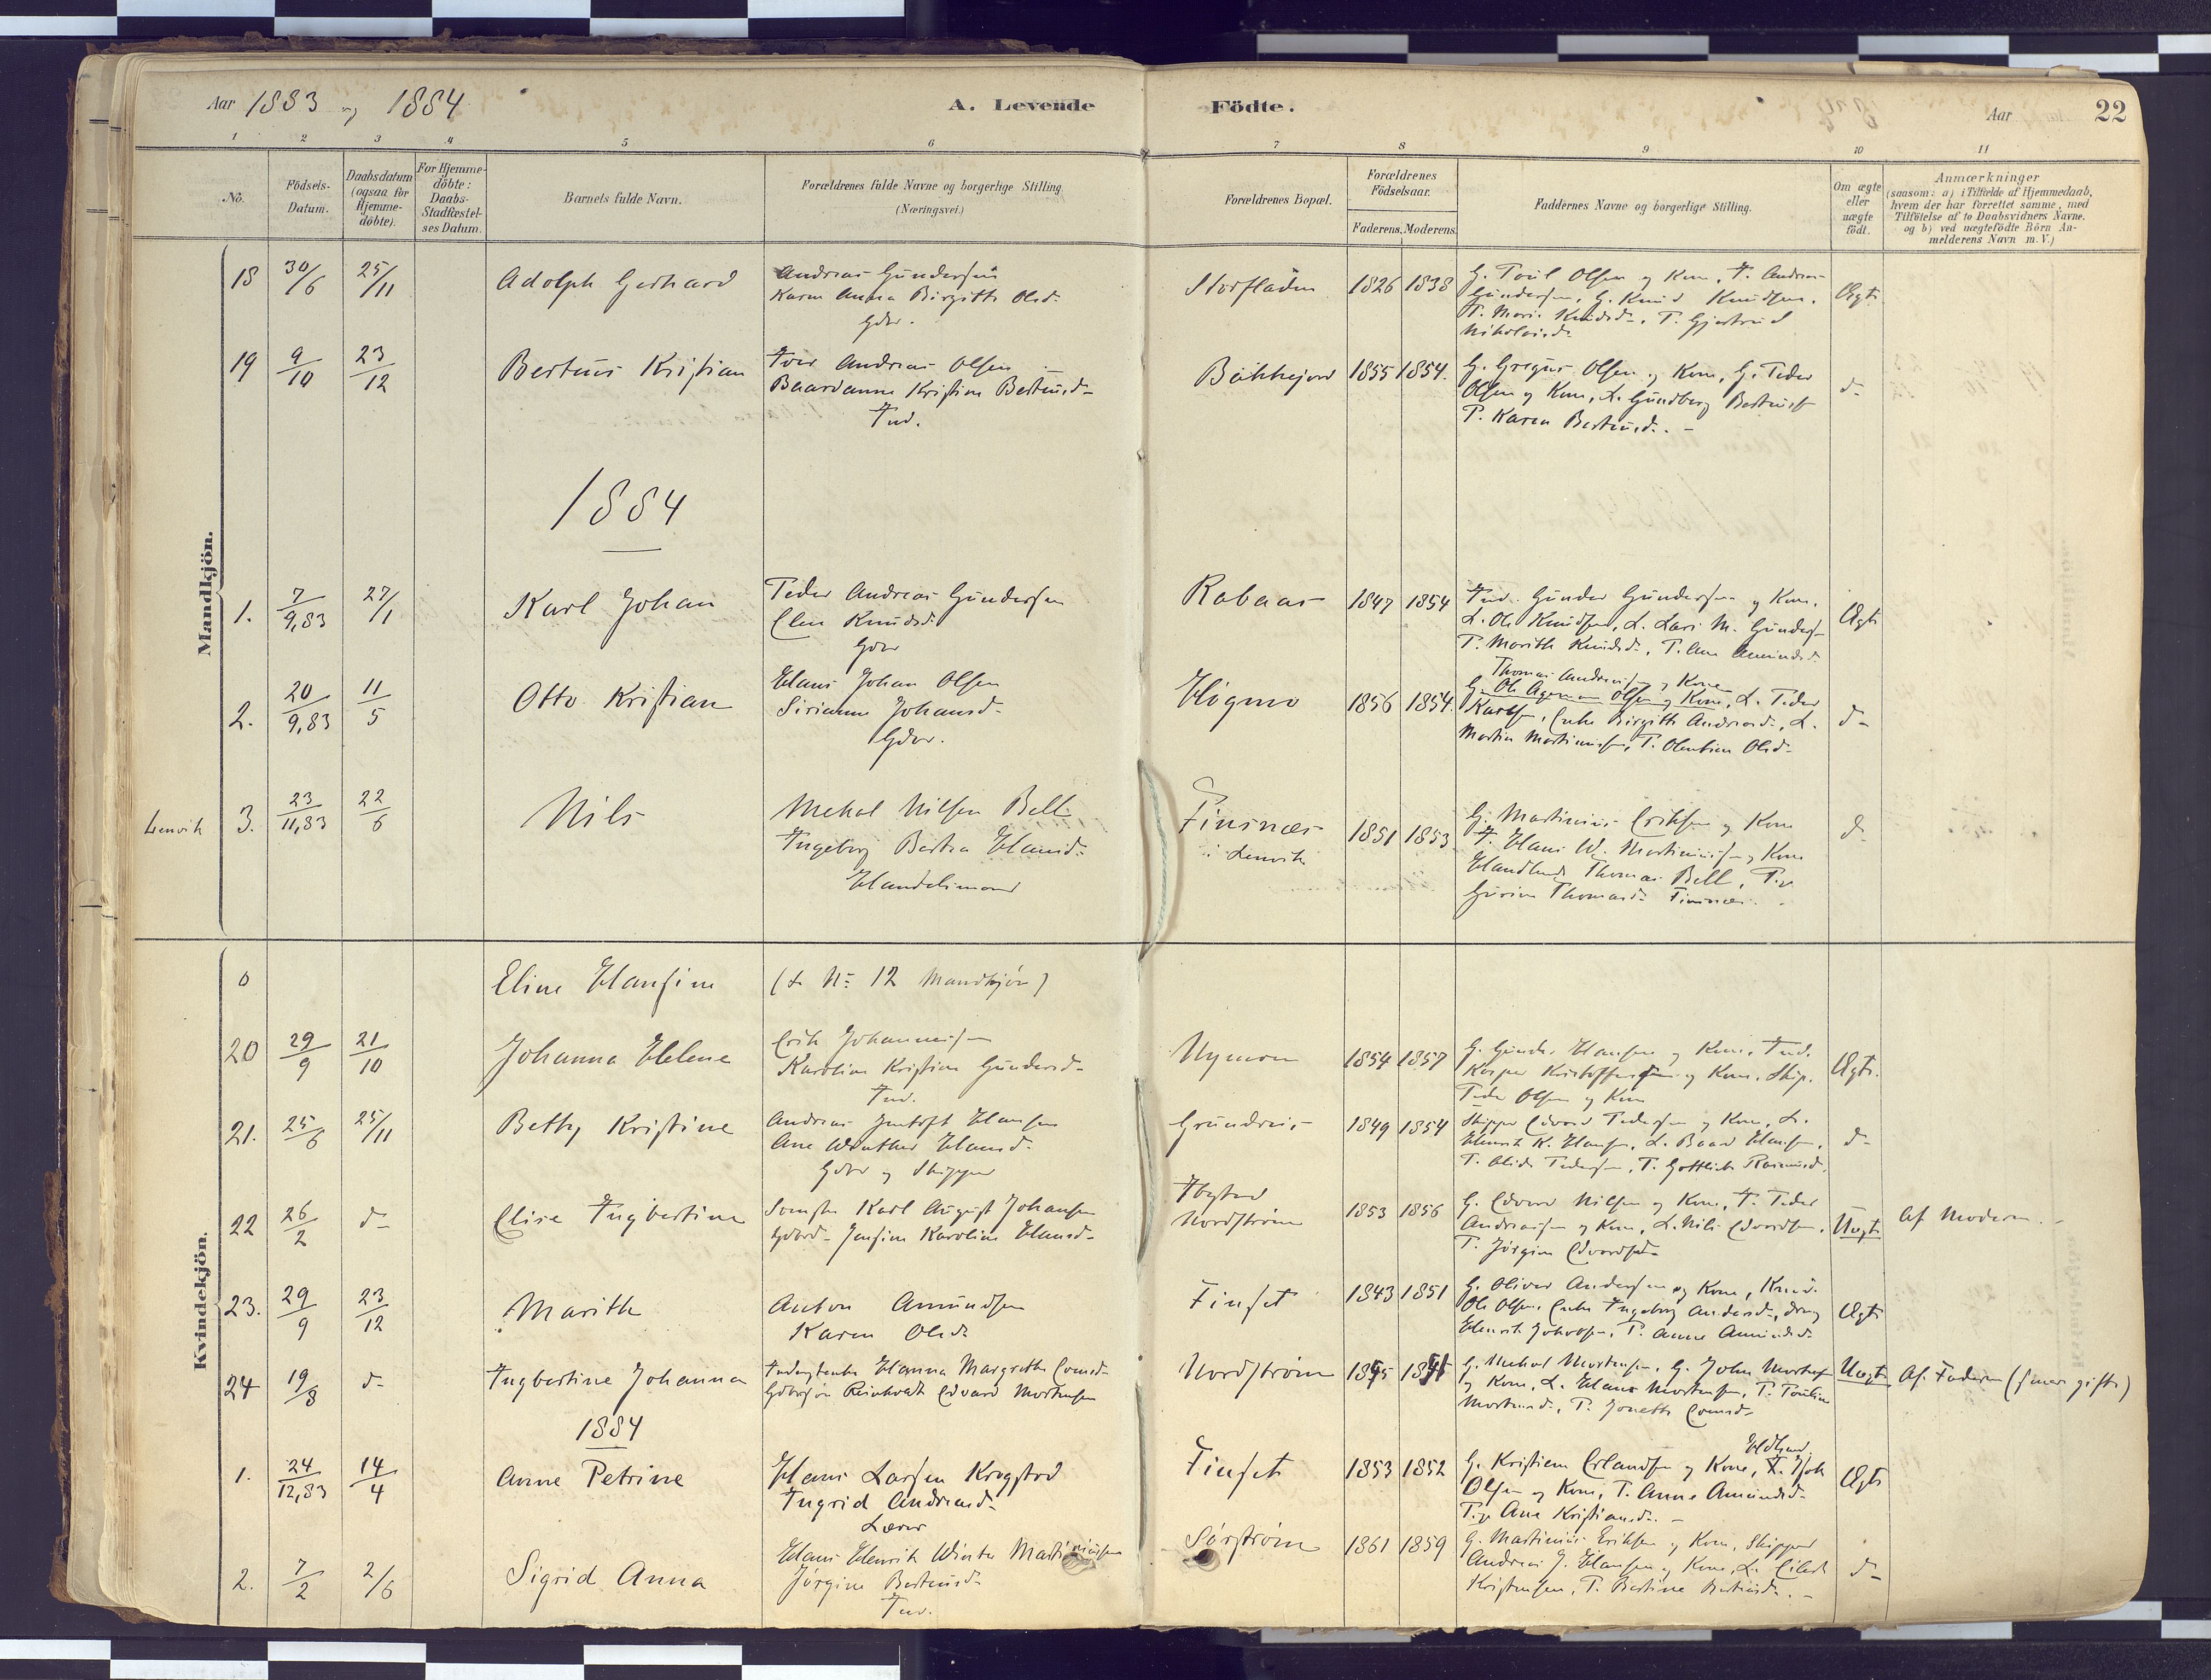 Aar 1883 og 1884
A. Levende Födte.
Aar
22
1 2 3 4 5 6 7 8 9 10 11
No.
Födsels-Datum.
Daabsdatum (ogsaa for Hjemme-döbte).
For Hjemme-döbte: Daabs-Stadfæstel-ses Datum.
Barnets fulde Navn.
Forældrenes fulde Navne og borgerlige Stilling.
(Næringsvei.)
Forældrenes Bopæl.
Forældrenes Födselsaar.
Faderens. Moderens.
Faddernes Navne og borgerlige Stilling.
Om ægte eller uægte födt.
Anmærkninger
(saasom: a) i Tilfælde af Hjemmedaab,
hvem der har forrettet samme, med
Tilföielse af to Daabsvidners Navne.
og b) ved uægtefödte Börn An-
melderens Navn m. V.)
Mandkjön.
18 30/6 25/11 Adolph Gerhard
Andreas Gundersen
Karen Anna Birgitte Olsd.
Gdbr.
1826 1838
G. Poul Olsen og Kone, F. Andreas
Gundersen, G. Knud Knudsen,
P. Marie Knudsd., P. Gjertrud
Nikolaisd.
Ægte
19 9/10 23/12 Bertus Kristian
Andreas Olsen
Baardanna Kristine Bertusd.
Ind.
1855 1854.
G. Gregus Olsen og Kone, G. Peder
Olsen og Kone, L. Gundberg
P. Karen Bertusd. -
d-
1884
1. 7/9,83 27/1 Karl Johan
Peder Andreas Gundersen
Elen Knudsd.
Gdbr
Rabaas 1847 1854
Ind. Gunder Gundersen og Kone,
L. Ole Knudsen, L. Lars M. Gunders
P. Marith Knudsd., P. Ane Amundsd.
Ægte
2. 20/9,83 11/5 Otto Kristian
Hans Johan Olsen
Sirianna Johansd.
Gdbr.
Högmo 1856 1854.
Thomas Andreassen og Kone
G. Ole Ageman Olsen og Kone, L. Peder
Karlsen, Enke Birgitte Andreasd., L.
Martin Martinussen, P. Olentine Olsd.
d-
Lenvik 3. 23/11,83 22/6 Nils
Mekal Nilsen Bell
Ingeborg Bertea Hansd.
Handelsmand
Finsnæs
i Lenvik
1851 1853
G. Martinius Eriksen og Kone
F. Hans W. Martiniussen og Kone
Thomas Bell, Pige
Gurine Thomasd. Finsnæs.
d-
Kvindekjön.
0 Eline Hansine (se No 12 Mandkjön)
20 29/9 21/10 Johanna Helene
Erik Johannessen
Karoline Kristine Gundersd.
Ind.
Nymoen 1854 1857
G. Gunder Hansen og Kone, Ind.
Kasper Kristoffersen og Kone, Skip.
Peder Olsen og Kone
Ægte.
21. 25/6 25/11 Betty Kristine
Andreas Hansen
Ane Hansd.
Gdbr og Skipper
1849 1854
Skipper Edvard Pedersen og Kone, L.
Henrik K. Hansen, L. Baard Hansen,
d-
22 26/2 d- Elise Ingbertine
Karl August Johansen
Jensine Karoline Hansd.
Ibestad
Nordstrøm
1853 1856
G. Edvard Nilsen og Kone, F. Peder
Andreassen og Kone, L. Nils Edvardsen,
P. Jörgine Edvardsd.
Uægte
Af Moderen. -
23. 29/9 23/12 Marith
Anton Amundsen
Karen Olsd.
Finset 1843 1851
G. Oliver Andersen og Kone,
Ole Olsen, Enke Ingeborg Andersd., dreng
P. Anne Amundsd.
Ægte
24 19/8 d- Ingbertine Johanna
Hanna Margrethe
Gdbrsøn Reinholdt Edvard Mortensen
Nordstrøm
G. Mekal Mortensen, G. John
og Kone, L. Hans Mortensen, P.
Uægte
Af Faderen (siden gift)
1884
1. 24/12,83 14/4 Anne Petrine
Hans Larsen Krogstad
Ingrid Andreasd.
Lærer
Finset 1853 1852
G. Kristian Erlandsen og Kone,
Olsen og Kone, P. Anne Amundsd.
Pige Ane Kristiansd. -
Ægte
2. 7/2 2/6 Sigrid Anna
Hans Henrik Winter Martiniussen
Jörgine Bertusd.
Ind.
Sörstrøm 1861 1859
G. Martinius Eriksen og Kone, Skipper
Andreas J. Hansen og Kone, L.
Kristensen, P. Bertine Bertusd. -
d-